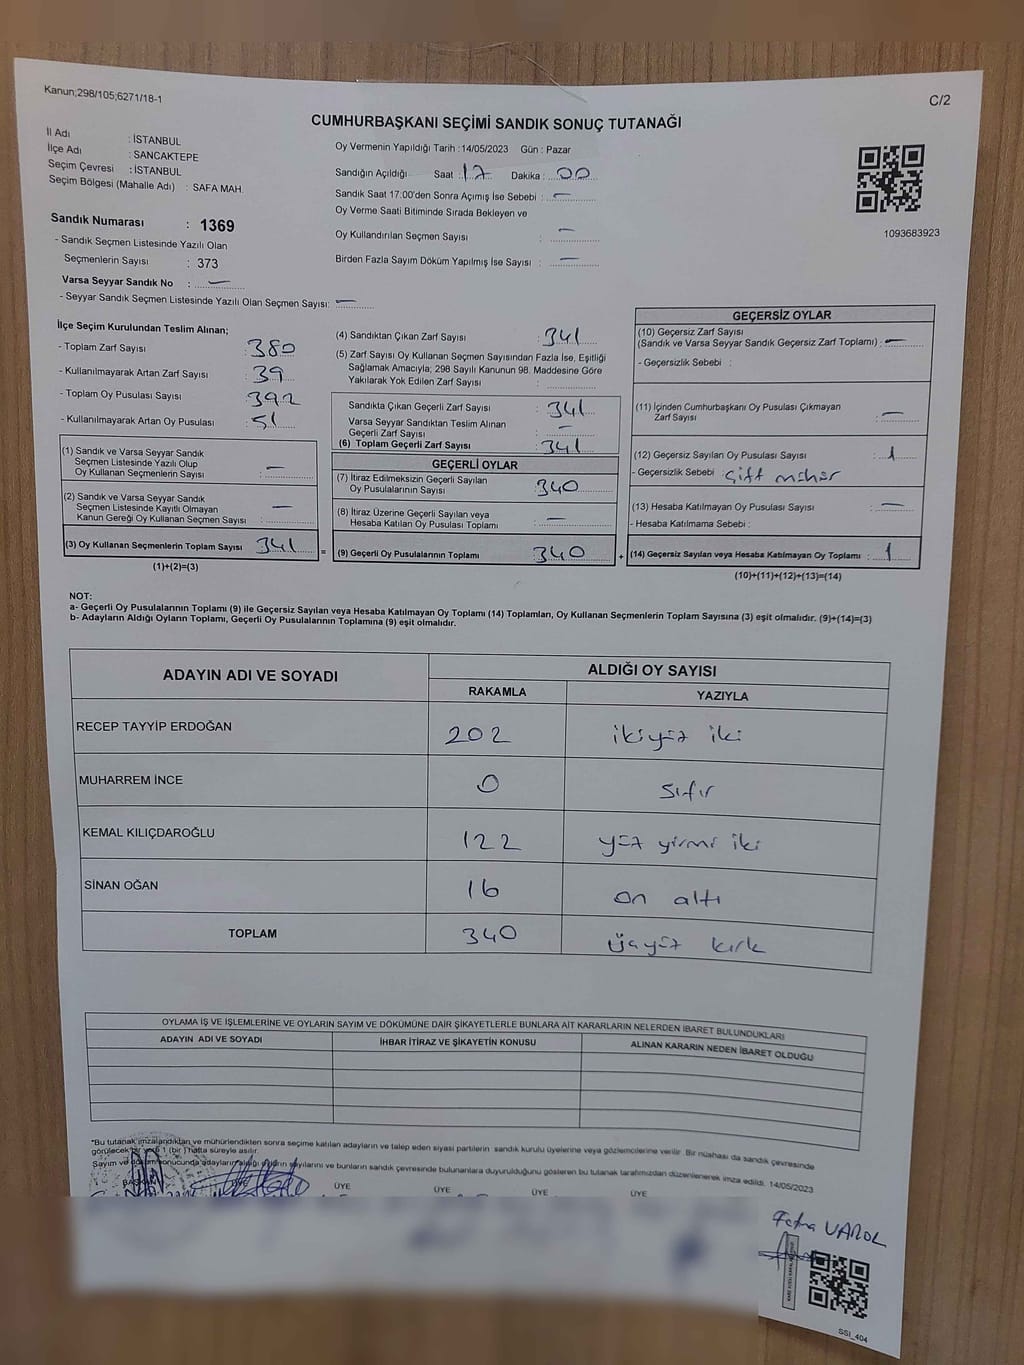 Kanun;298/105;6271/18-1
C/2
CUMHURBAŞKANI SEÇİMİ SANDIK SONUÇ TUTANAĞI
İl Adı : İSTANBUL
İlçe Adı : SANCAKTEPE
Seçim Çevresi : İSTANBUL
Seçim Bölgesi (Mahalle Adı) : SAFA MAH.
Oy Vermenin Yapıldığı Tarih : 14/05/2023 Gün : Pazar
Sandığın Açıldığı Saat : 17 Dakika : 00
Sandık Saat 17:00'den Sonra Açımış İse Sebebi : —
Oy Verme Saati Bitiminde Sırada Bekleyen ve
Oy Kullandırılan Seçmen Sayısı : —
Birden Fazla Sayım Döküm Yapılmış İse Sayısı : —
1093683923
Sandık Numarası : 1369
- Sandık Seçmen Listesinde Yazılı Olan
Seçmenlerin Sayısı : 373
Varsa Seyyar Sandık No : —
- Seyyar Sandık Seçmen Listesinde Yazılı Olan Seçmen Sayısı: —
İlçe Seçim Kurulundan Teslim Alınan;
- Toplam Zarf Sayısı : 380
- Kullanılmayarak Artan Zarf Sayısı : 39
- Toplam Oy Pusulası Sayısı : 392
- Kullanılmayarak Artan Oy Pusulası : 51
(1) Sandık ve Varsa Seyyar Sandık
Seçmen Listesinde Yazılı Olup
Oy Kullanan Seçmenlerin Sayısı : —
(2) Sandık ve Varsa Seyyar Sandık
Seçmen Listesinde Kayıtlı Olmayan
Kanun Gereği Oy Kullanan Seçmen Sayısı : —
(3) Oy Kullanan Seçmenlerin Toplam Sayısı : 341 =
(1)+(2)=(3)
(4) Sandıktan Çıkan Zarf Sayısı : 341
(5) Zarf Sayısı Oy Kullanan Seçmen Sayısından Fazla İse, Eşitliği
Sağlamak Amacıyla; 298 Sayılı Kanunun 98. Maddesine Göre
Yakılarak Yok Edilen Zarf Sayısı :
Sandıkta Çıkan Geçerli Zarf Sayısı : 341
Varsa Seyyar Sandıktan Teslim Alınan
Geçerli Zarf Sayısı : —
(6) Toplam Geçerli Zarf Sayısı : 341
GEÇERLİ OYLAR
(7) İtiraz Edilmeksizin Geçerli Sayılan
Oy Pusulalarının Sayısı : 340
(8) İtiraz Üzerine Geçerli Sayılan veya
Hesaba Katılan Oy Pusulası Toplamı : —
(9) Geçerli Oy Pusulalarının Toplamı : 340 +
GEÇERSİZ OYLAR
(10) Geçersiz Zarf Sayısı
(Sandık ve Varsa Seyyar Sandık Geçersiz Zarf Toplamı) : —
- Geçersizlik Sebebi :
(11) İçinden Cumhurbaşkanı Oy Pusulası Çıkmayan
Zarf Sayısı : —
(12) Geçersiz Sayılan Oy Pusulası Sayısı : 1
- Geçersizlik Sebebi : çift mühür
(13) Hesaba Katılmayan Oy Pusulası Sayısı : —
- Hesaba Katılmama Sebebi :
(14) Geçersiz Sayılan veya Hesaba Katılmayan Oy Toplamı : 1
(10)+(11)+(12)+(13)=(14)
NOT:
a- Geçerli Oy Pusulalarının Toplamı (9) ile Geçersiz Sayılan veya Hesaba Katılmayan Oy Toplamı (14) Toplamları, Oy Kullanan Seçmenlerin Toplam Sayısına (3) eşit olmalıdır. (9)+(14)=(3)
b- Adayların Aldığı Oyların Toplamı, Geçerli Oy Pusulalarının Toplamına (9) eşit olmalıdır.
ADAYIN ADI VE SOYADI
ALDIĞI OY SAYISI
RAKAMLA YAZIYLA
RECEP TAYYİP ERDOĞAN 202 ikiyüz iki
MUHARREM İNCE 0 sıfır
KEMAL KILIÇDAROĞLU 122 yüz yirmi iki
SİNAN OĞAN 16 on altı
TOPLAM 340 üçyüz kırk
OYLAMA İŞ VE İŞLEMLERİNE VE OYLARIN SAYIM VE DÖKÜMÜNE DAİR ŞİKAYETLERLE BUNLARA AİT KARARLARIN NELERDEN İBARET BULUNDUKLARI
ADAYIN ADI VE SOYADI İHBAR İTİRAZ VE ŞİKAYETİN KONUSU ALINAN KARARIN NEDEN İBARET OLDUĞU
*Bu tutanak imzalandıktan ve mühürlendikten sonra seçime katılan adayların ve talep eden siyasi partilerin sandık kurulu üyelerine veya gözlemcilerine verilir. Bir nüshası da sandık çevresinde
görülecek bir yere 1 (bir) hafta süreyle asılır.
Sayım ve döküm sonucunda adayların aldığı oyların sayılarını ve bunların sandık çevresinde bulunanlara duyurulduğunu gösteren bu tutanak tarafımızdan düzenlenerek imza edildi. 14/05/2023
BAŞKAN ÜYE ÜYE ÜYE ÜYE
VAROL
SSI_404